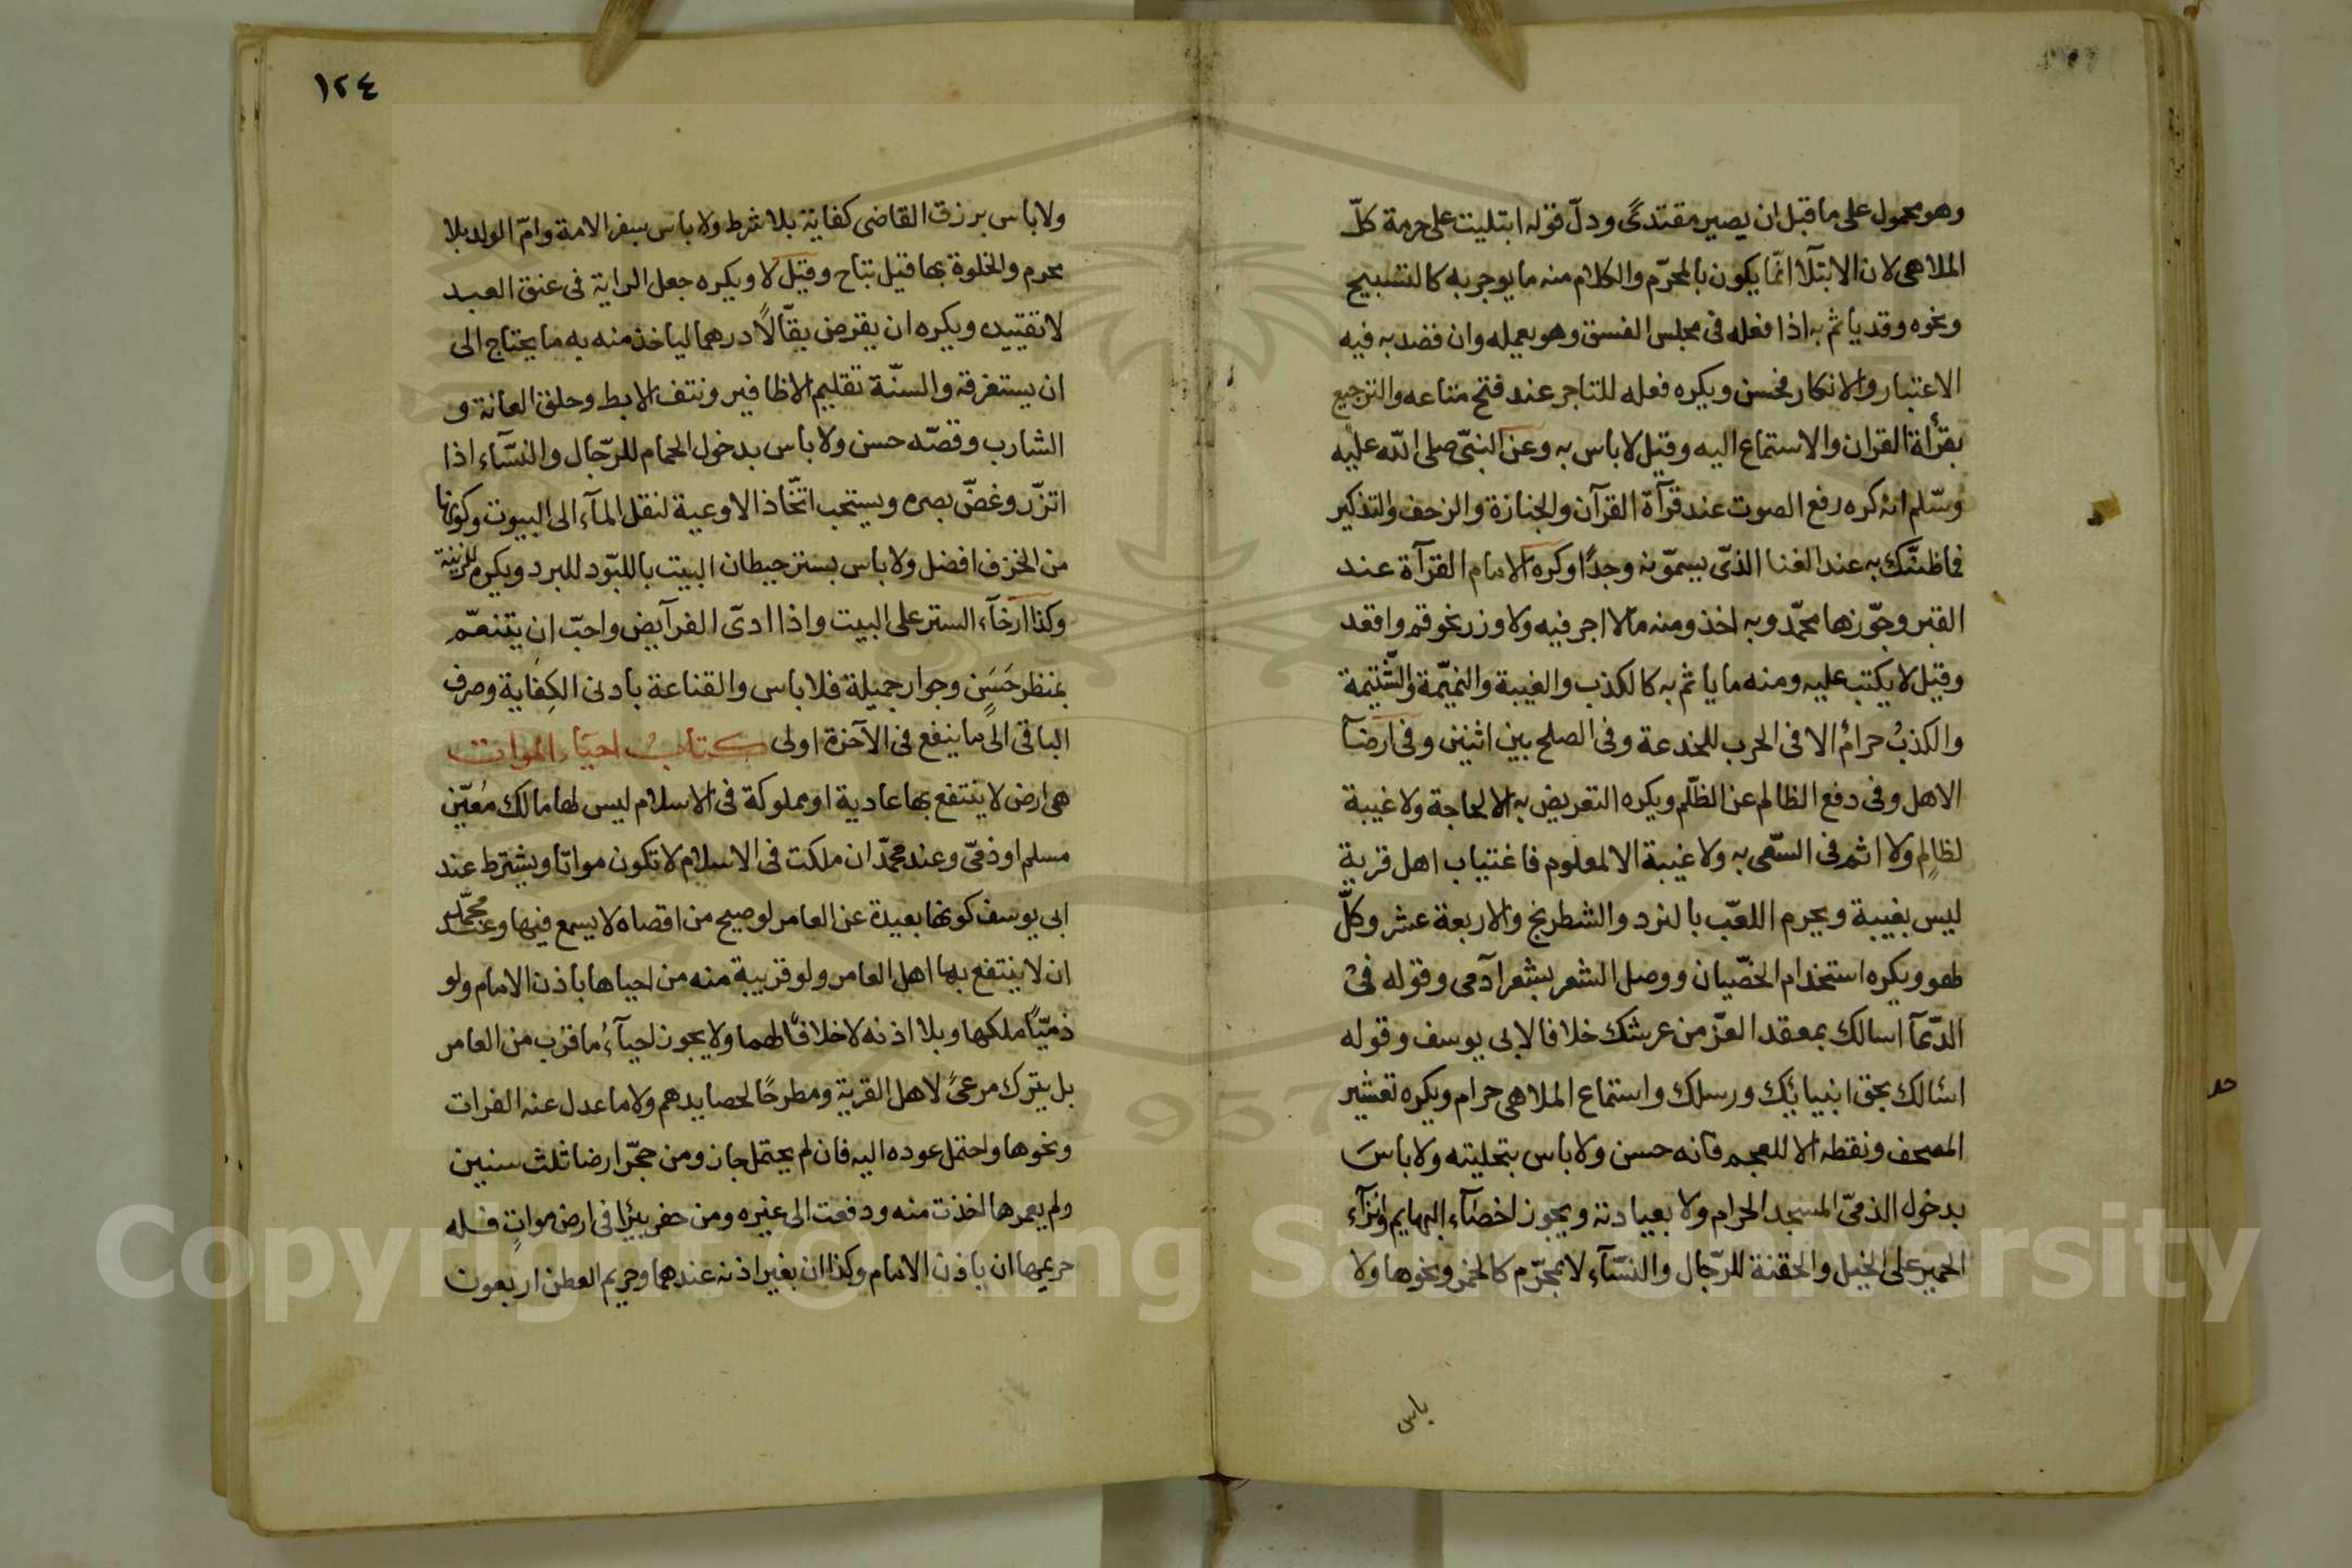 وهو محمول على ما قبل ان يصير مقتدىً ودلّ قوله ابتليت على حرمة كلّ
الملاهى لان الابتلآ انّما يكون بالمحرّم والكلام منه ما يوجر به كالتسبيح
ونحوه وقد ياثم به اذا فعله فى مجلس الفسق وهو يعمله وان قصد به فيه
الاعتبار والانكار فحسن ويكره فعله للتاجر عند فتح متاعه والترجيع
بقرأة القران والاستماع اليه وقيل لا باس به وعن النبىّ صلى الله عليه
وسّلم انه كره رفع الصوت عند قرآة القرآن والجنازة والزحف والتذكير
فما ظنّك به عند الغنا الذىّ يسمّونه وجدًا وكره الامام القرآة عند
القبر وجوّزها محمّد وبه اخذ ومنه ما لا اجر فيه ولا وزر نحو قم واقعد
وقيل لا يكتب عليه ومنه ما ياثم به كالكذب والغيبة والنميّمة والشّتيمة
والكذبُ حرامٌ الا فى الحرب للخدعة وفى الصلح بين اثنين وفى ارضآ
الاهل وفى دفع الظالم عن الظّلم ويكره التعريض به الا لحاجة ولا غيبة
لظالمٍ ولا اثم فى السّعى به ولا غيبة الا لمعلوم فاغتياب اهل قرية
ليس بغيبة ويحرم اللعّب بالنرد والشطرنج والاربعة عشر وكلّ
لهو ويكره استخدام الخصّيان ووصل الشعر بشعر آدمى وقوله فى
الدّعآ اسالك بمعقد العزّ من عرشك خلافا لابى يوسف وقوله
اسٔالك بحق انبيائك ورسلك واستماع الملاهى حرام ويكره تعشير
المصحف ونقطه الا للعجم فانه حسن ولا باس بتحليته ولا باسَ
بدخول الذمىّ المسجد الحرام ولا بعيادته ويجوز اخصآء البهايم وانزآء
الحمير على الخيل والحقنة للرّجال والنسّآء لا بمحرّم كالخمر ونحوها ولا
باس
١٢٤
ولا باس برزق القاضى كفاية بلا شرط ولا باس بسفر الامة وامّ الولد بلا
محرم والخلوة بها قيل تباح وقيل لا ويكره جعل الراية فى عنق العبد
لا تقييده ويكره ان يقرض بقّالاً درهما لياخذ منه به ما يحتاج الى
ان يستغرقه والسنّة تقليم الاظافير ونتف الابط وحلق العانة و
الشارب وقصّه حسن ولا باس بدخول الحمام للرّجال والنسّآء اذا
اتزّر وغضّ بصره ويستحب اتخّاذ الاوعية لنقل المآء الى البيوت وكونها
من الخزف افضل ولا باس بستر حيطان البيت باللبّود للبرد ويكره للزينة
وكذا ارخآء الستر على البيت واذا ادىّ الفرآيض واحبّ ان يتنعّم
بمنظر حَسَنٍ وجوار جميلة فلا باس والقناعة بادنى الكِفاية وصرف
الباقى الى ما ينفع فى الآخرة اولى كتابُ احيآء الموات
هى ارض لا ينتفع بها عادية او مملوكة فى الاسلام ليس لها مالك مُعيّن
مسلم او ذمّى وعند محمّد ان ملكت فى الاسلام لا تكون مواتا ويشترط عند
ابى يوسف كونها بعيدة عن العامر لو صيح من اقصاه لا يسمع فيها وعند محمّد
ان لا ينتفع بها اهل العامر ولو قريبة منه من احياها باذن الامام ولو
ذمّيًا ملكها وبلا اذنه لا خلافًا لهما ولا يجوز احيآءُ ما قرُب من العامر
بل يترك مرعىً لاهل القرية ومطرحًا لحصايدهم ولا ما عدل عنه الفرات
ونحوها واحتمل عوده اليه فان لم يحتمل جاز ومن حجّر ارضا ثلث سنين
ولم يعمرها اخذت منه ودفعت الى غيره ومن حفر بئرًا فى ارض مواتٍ فله
حريمها ان باذن الامام وكذا ان بغير اذنه عندهما وحريم العطن اربعون